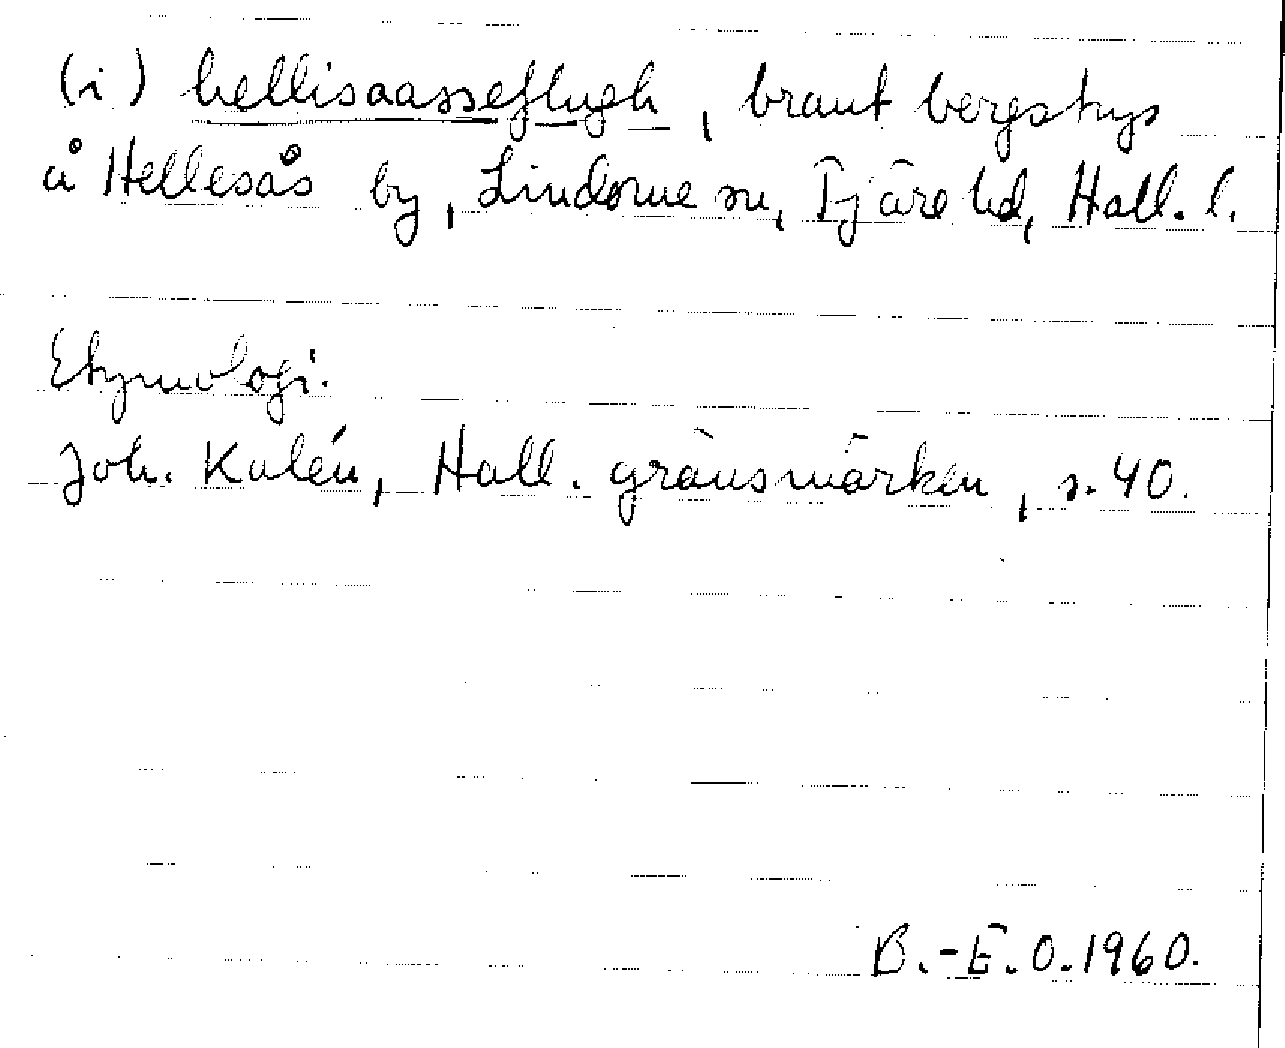 (i) hellisaasseflugh, brant bergstup
å Hellesås by, Lindome sn, Fjäre hd, Hall. l.
Etymologi.
Joh. Kalén, Hall. gränsmärken, s. 40.
B.-E.O. 1960.